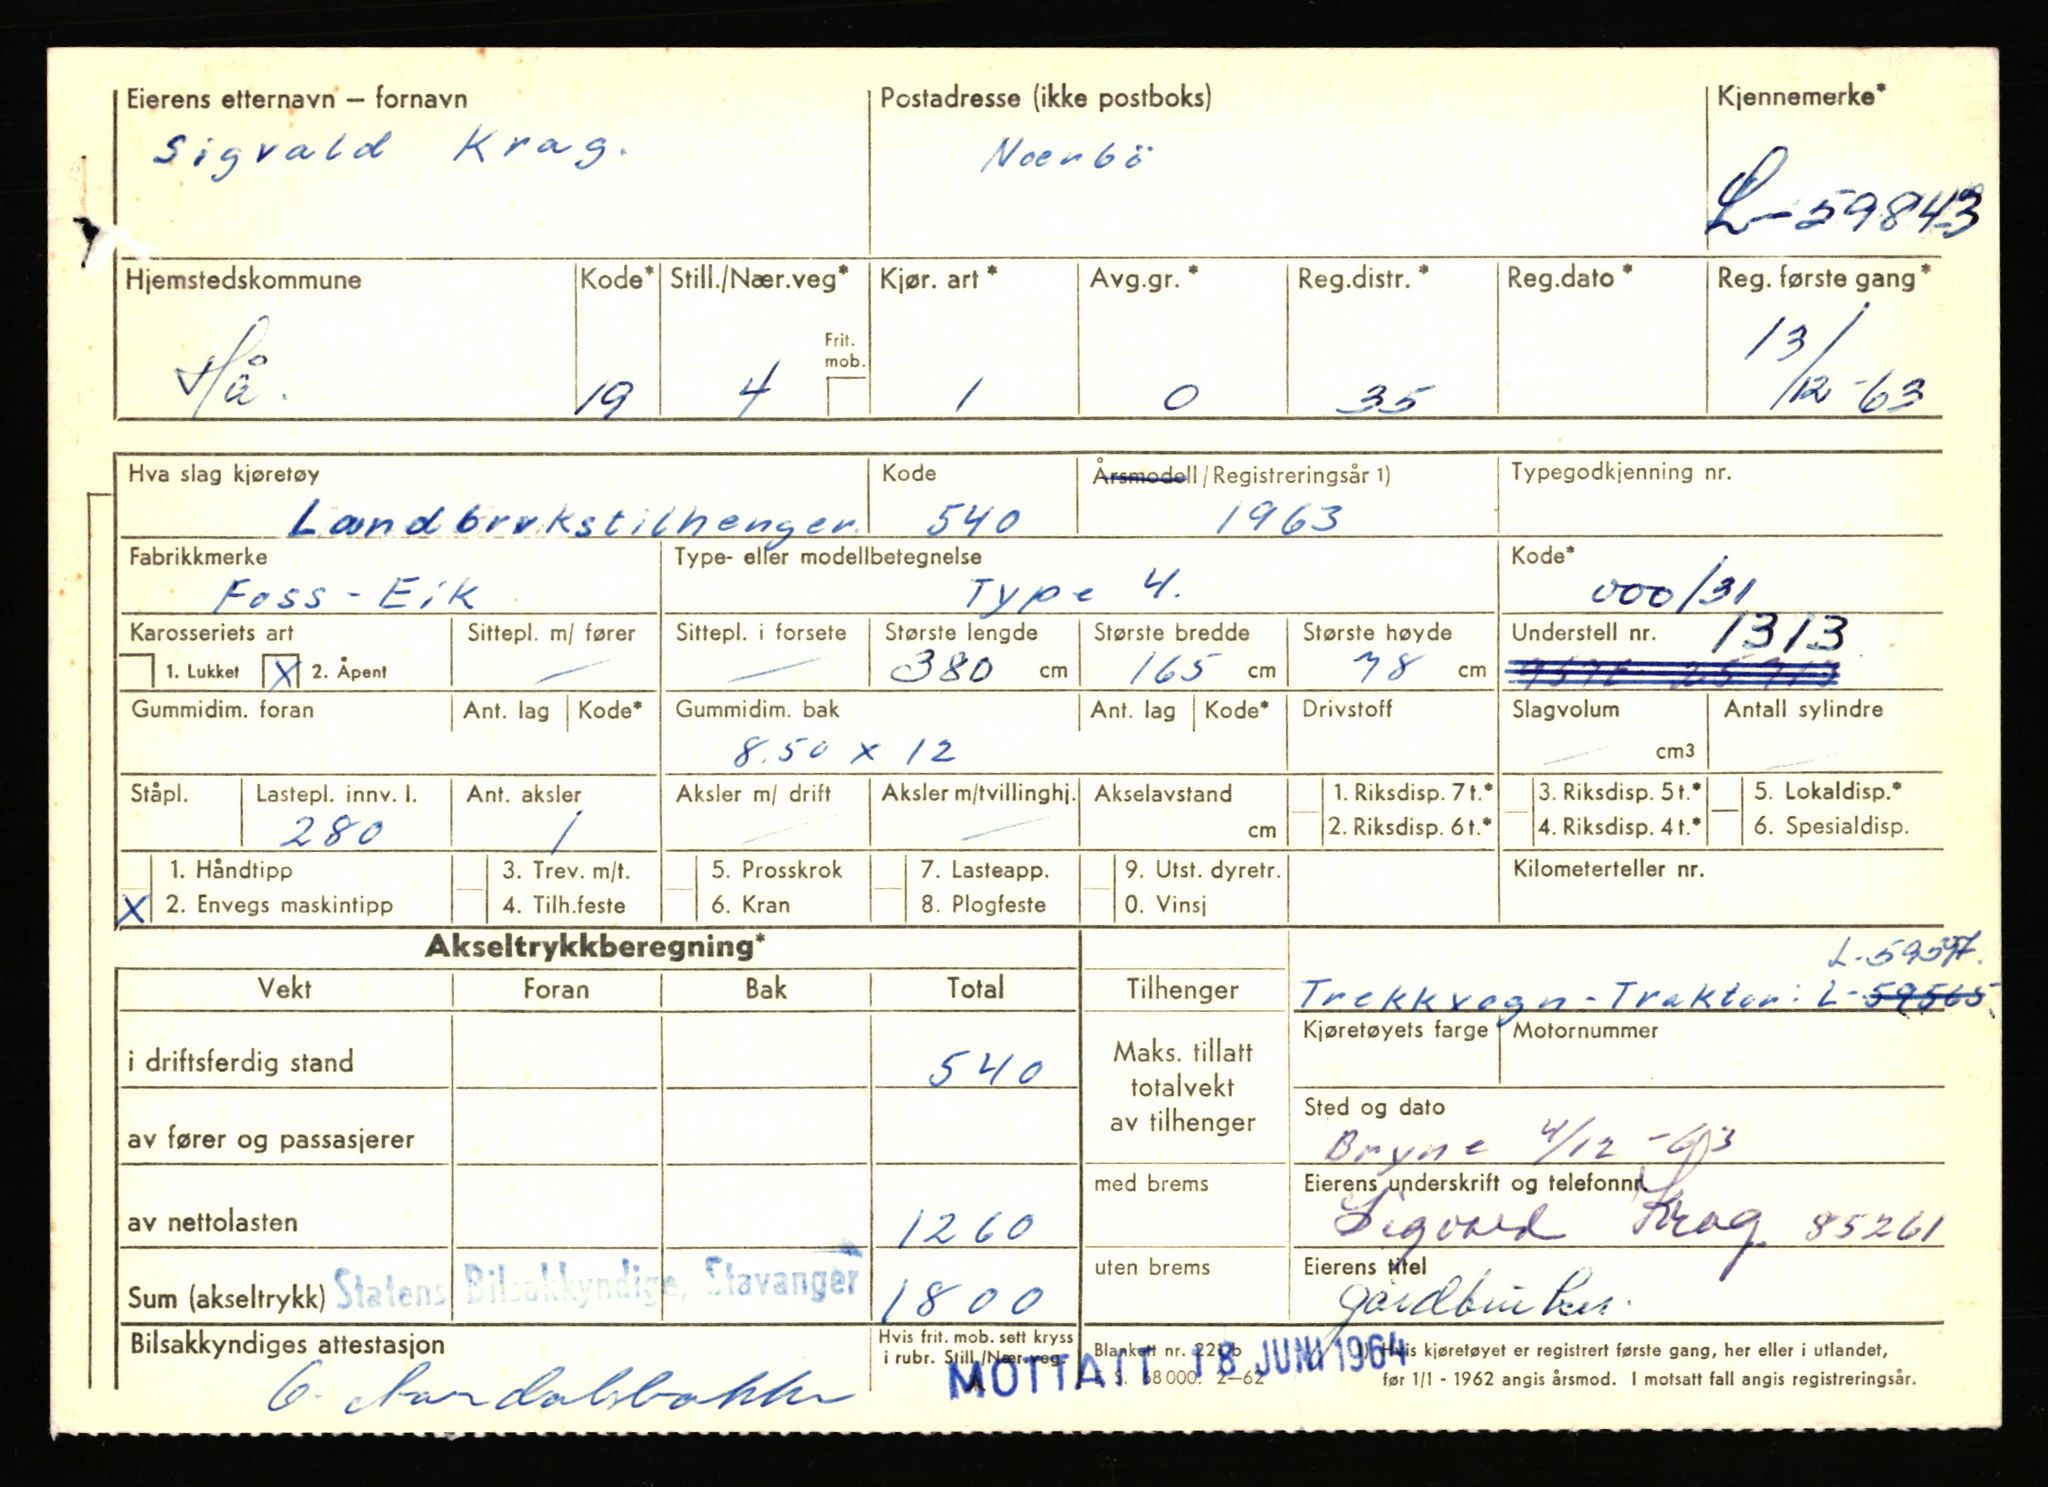 Eierens etternavn – fornavn Postadresse (ikke postboks) Kjennemerke*
Sigvald Krag. Nærbö L-59843
Hjemstedskommune Kode* Still./Nær.veg* Kjør. art* Avg.gr.* Reg.distr.* Reg.dato* Reg. første gang*
Frit. mob.
Hå. 19 4 1 0 35 13/12-63
Hva slag kjøretøy Kode Årsmodell/Registreringsår 1) Typegodkjenning nr.
Landbrukstilhenger. 540 1963
Fabrikkmerke Type- eller modellbetegnelse Kode*
Foss-Eik Type 4. 000/31
Karosseriets art Sittepl. m/ fører Sittepl. i forsete Største lengde Største bredde Største høyde Understell nr. 1313
1. Lukket X 2. Åpent – – 380 cm 165 cm 78 cm
Gummidim. foran Ant. lag Kode* Gummidim. bak Ant. lag Kode* Drivstoff Slagvolum Antall sylindre
8.50 x 12 – cm3 –
Ståpl. Lastepl. innv. l. Ant. aksler Aksler m/ drift Aksler m/tvillinghj. Akselavstand 1. Riksdisp. 7 t.* 3. Riksdisp. 5 t.* 5. Lokaldisp.*
280 1 – – cm 2. Riksdisp. 6 t.* 4. Riksdisp. 4 t.* 6. Spesialdisp.
1. Håndtipp 3. Trev. m/t. 5. Prosskrok 7. Lasteapp. 9. Utst. dyretr. Kilometerteller nr.
X 2. Envegs maskintipp 4. Tilh.feste 6. Kran 8. Plogfeste 0. Vinsj
Akseltrykkberegning*
Vekt Foran Bak Total Tilhenger Trekkvogn-Traktor: L-59565
Kjøretøyets farge Motornummer
i driftsferdig stand 540 Maks. tillatt totalvekt av tilhenger
Sted og dato
av fører og passasjerer Bryne 4/12-63
med brems Eierens underskrift og telefonnr.
av nettolasten 1260 Sigvald Krag 85261
uten brems Eierens titel
Sum (akseltrykk) Statens Bilsakkyndige, Stavanger 1800 gårdbruker.
Bilsakkyndiges attestasjon Hvis frit. mob. sett kryss i rubr. Still./Nær.veg. Blankett nr.
1) Hvis kjøretøyet er registrert første gang, her eller i utlandet,
MOTTATT 18 JUNI 1964
68 000. 2–62 før 1/1 - 1962 angis årsmod. I motsatt fall angis registreringsår.